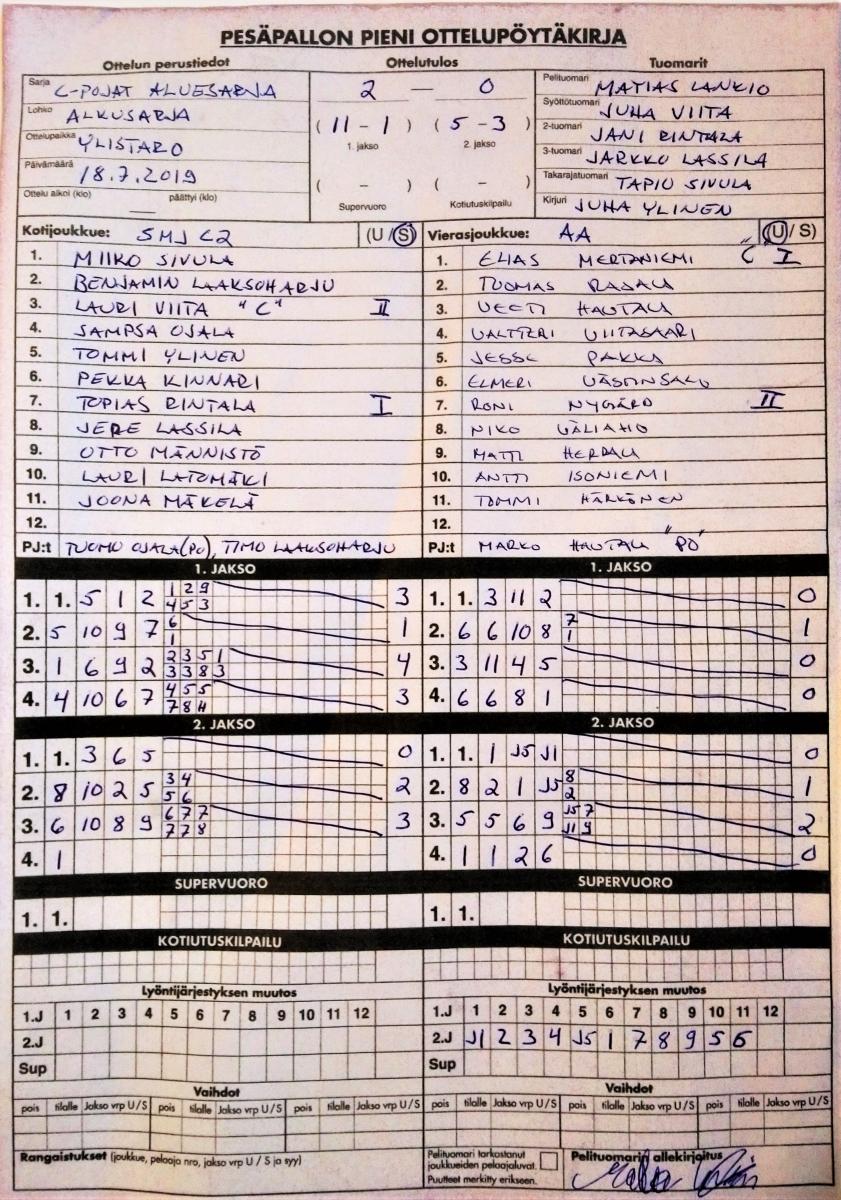 PESÄPALLON PIENI OTTELUPÖYTÄKIRJA
Ottelun perustiedot
Sarja C-POJAT ALUESARJA
Lohko ALKUSARJA
Ottelupaikka YLISTARO
Päivämäärä 18.7.2019
Ottelu alkoi (klo) — päättyi (klo)
Ottelutulos
2 — 0
( 11 - 1 ) ( 5 - 3 )
1. jakso 2. jakso
( - ) ( - )
Supervuoro Kotiutuskilpailu
Tuomarit
Pelituomari MATIAS LANKIO
Syöttötuomari JUHA VIITA
2-tuomari JANI RINTALA
3-tuomari JARKKO LASSILA
Takarajatuomari TAPIO SIVULA
Kirjuri JUHA YLINEN
Kotijoukkue: SMJ C2 (U/S)
1. MIIKO SIVULA
2. BENJAMIN LAAKSOHARJU
3. LAURI VIITA "C" II
4. SAMPSA OJALA
5. TOMMI YLINEN
6. PEKKA KINNARI
7. TOPIAS RINTALA I
8. JERE LASSILA
9. OTTO MÄNNISTÖ
10. LAURI LATOMÄKI
11. JOONA MÄKELÄ
12.
PJ:t TUOMO OJALA(PO), TIMO LAAKSOHARJU
Vierasjoukkue: AA (U/S)
1. ELIAS MERTANIEMI "C I
2. TUOMAS
3. VEETI HAUTALA
4. VALTTERI VIITASAARI
5. JESSE
6. ELMERI
7. RONI NYGÅRD II
8. NIKO VÄLIAHO
9. MATTI HERRALA
10. ANTTI ISONIEMI
11. TOMMI HÄRKÖNEN
12.
PJ:t MARKO HAUTALA "PO"
1. JAKSO
1. 1. 5 1 2 1 2 9 3
4 5 3
2. 5 10 9 7 6 1
1
3. 1 6 9 2 2 3 5 1 4
3 3 8 3
4. 4 10 6 7 4 5 5 3
7 8 11
1. JAKSO
1. 1. 3 11 2 0
2. 6 6 10 8 7 1
1
3. 3 11 4 5 0
4. 6 6 8 1 0
2. JAKSO
1. 1. 3 6 5 0
2. 8 10 2 5 3 4 2
5 6
3. 6 10 8 9 6 7 7 3
7 7 8
4. 1
2. JAKSO
1. 1. 1 J5 J1 0
2. 8 2 1 J5 8 1
2
3. 5 5 6 9 J5 7 2
J1 9
4. 1 1 2 6 0
SUPERVUORO
1. 1.
SUPERVUORO
1. 1.
KOTIUTUSKILPAILU
KOTIUTUSKILPAILU
Lyöntijärjestyksen muutos
1.J 1 2 3 4 5 6 7 8 9 10 11 12
2.J
Sup
Lyöntijärjestyksen muutos
1.J 1 2 3 4 5 6 7 8 9 10 11 12
2.J J1 2 3 4 J5 1 7 8 9 5 6
Sup
Vaihdot
pois tilalle Jakso vrp U/S pois tilalle Jakso vrp U/S pois tilalle Jakso vrp U/S
Vaihdot
pois tilalle Jakso vrp U/S pois tilalle Jakso vrp U/S pois tilalle Jakso vrp U/S
Rangaistukset (joukkue, pelaaja nro, jakso vrp U / S ja syy)
Pelituomari tarkastanut
joukkueiden pelaajaluvat.
Puutteet merkitty erikseen.
Pelituomarin allekirjoitus